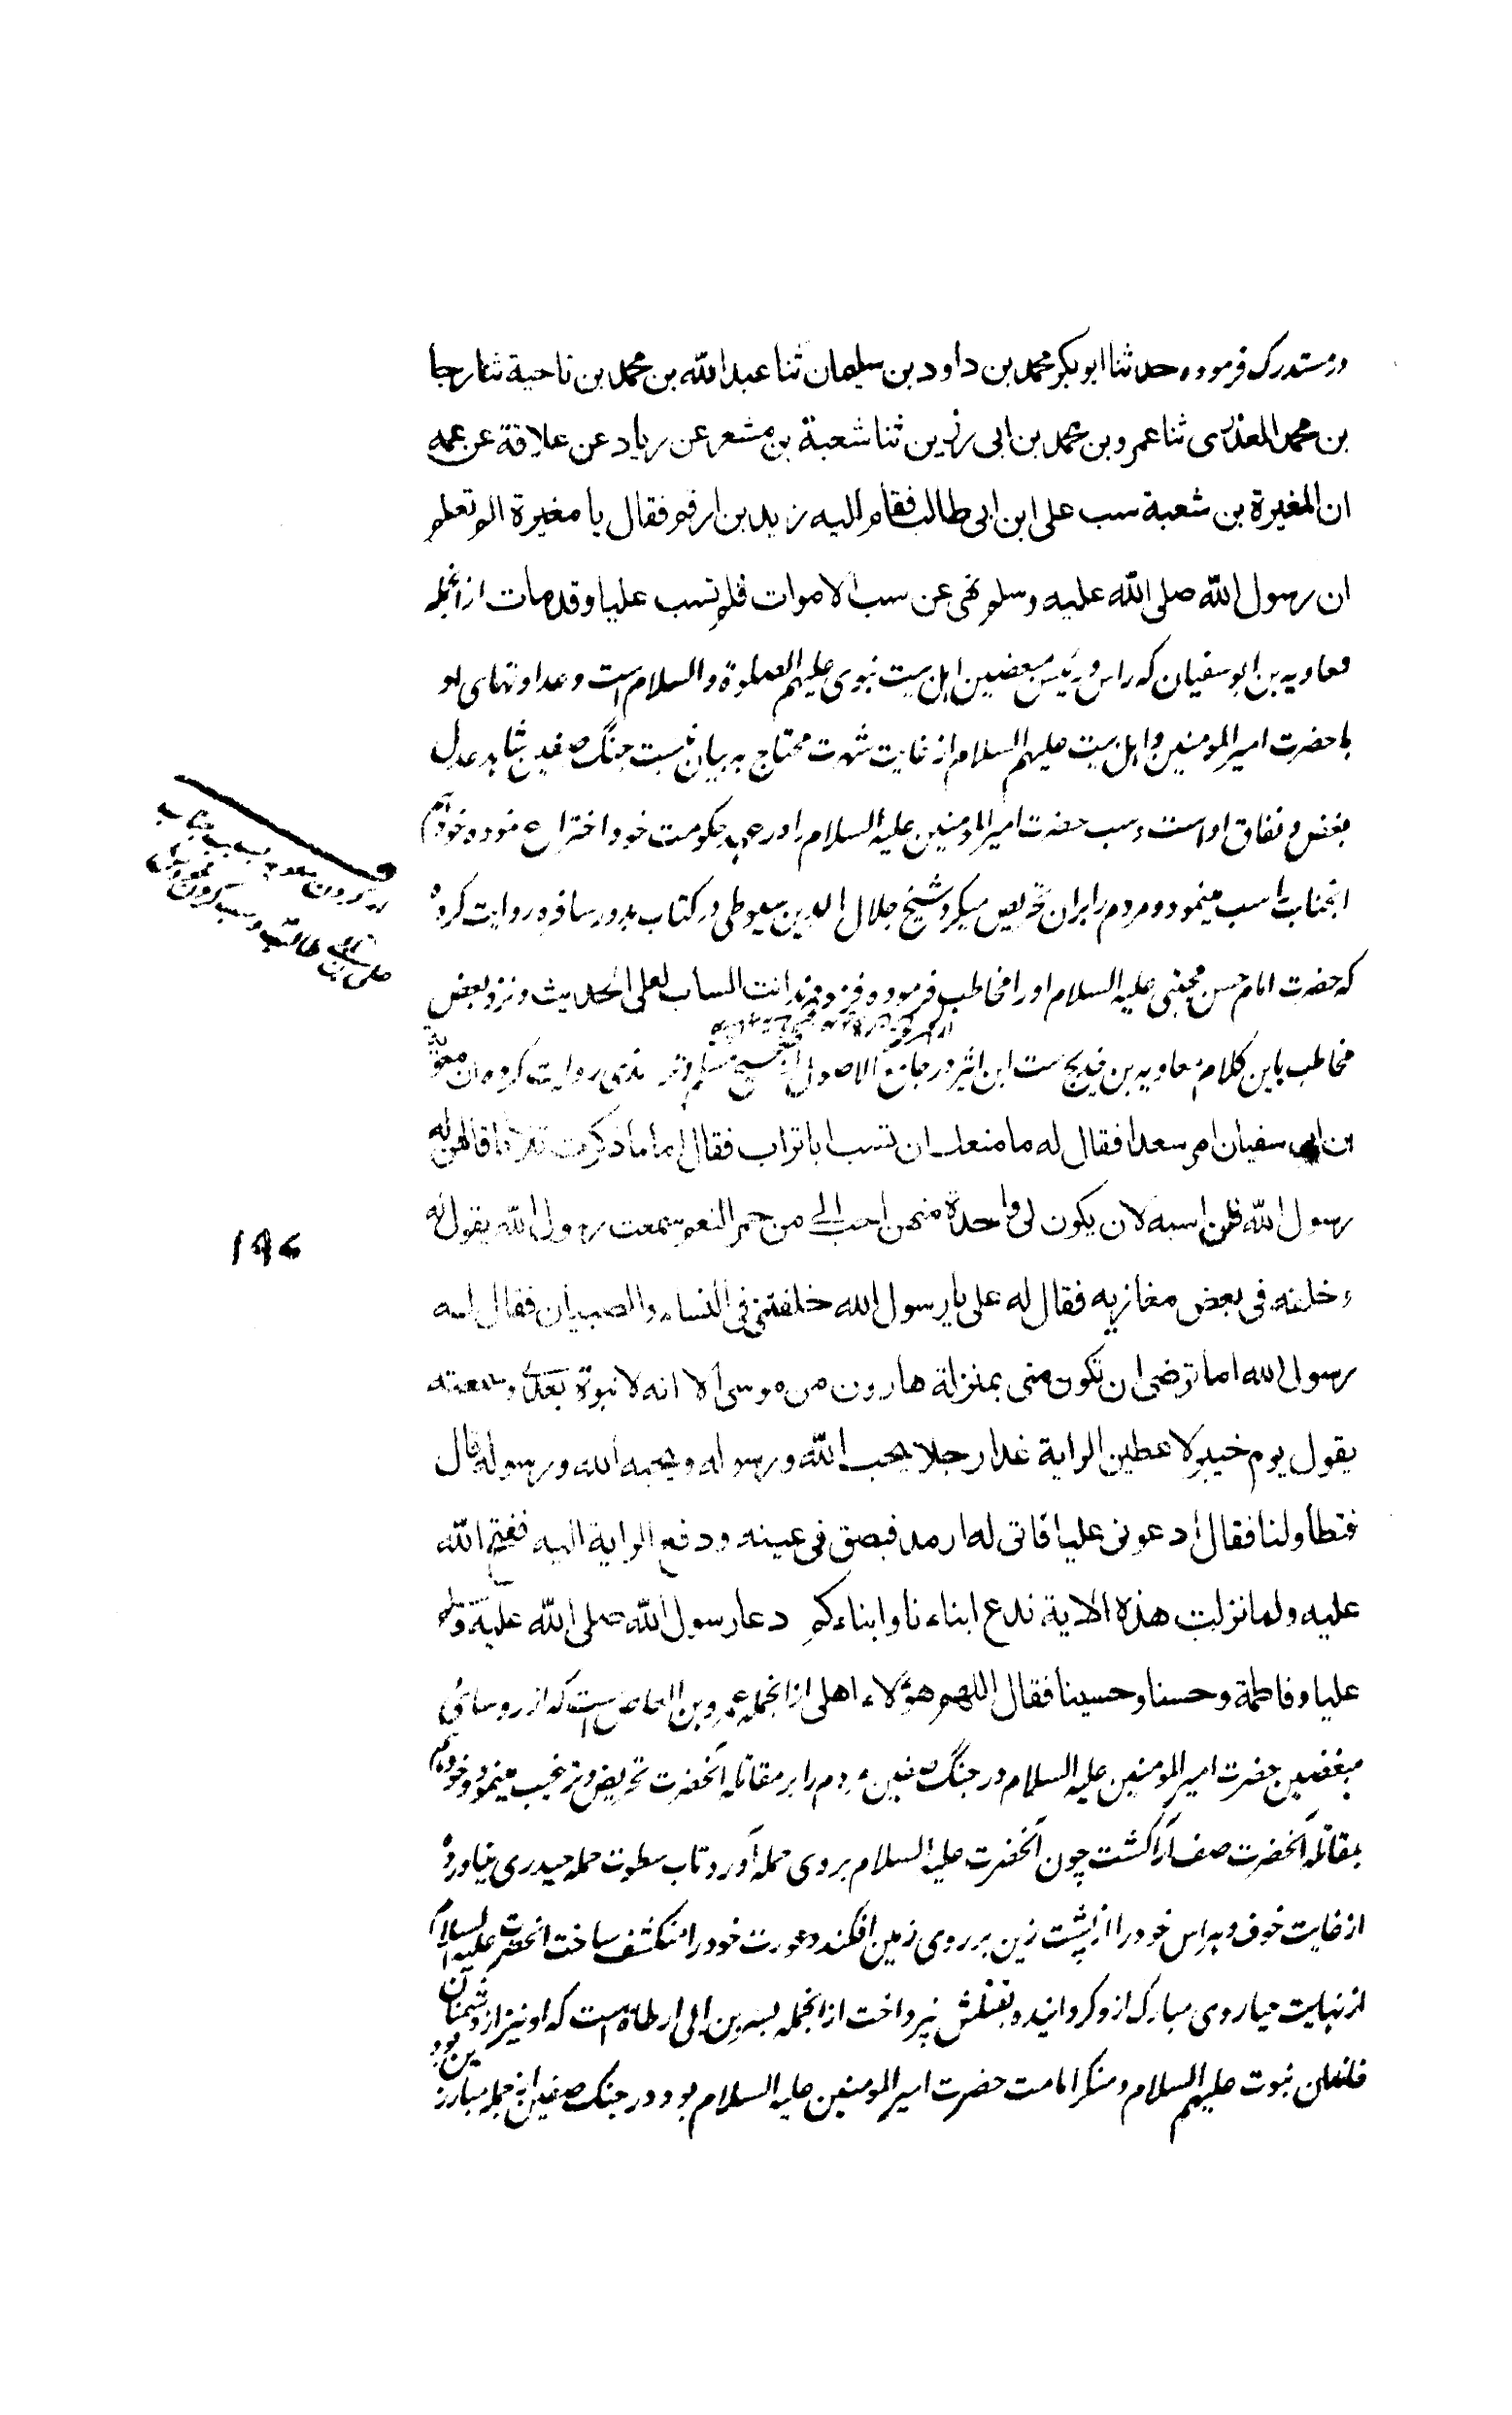 در مستدرک فرموده حدثنا ابو بکر محمد بن داود بن سلیمان ثنا عبد الله بن محمد بن ناحیة ثنا رجا
بن محمد العذری ثنا عمرو بن محمد بن ابی رزین ثنا شعبة بن مشعر عن زیاد عن علاقة عن عمه
ان المغیرة بن شعبة سب علی ابن ابی طالب فقام الیه زید بن ارقم فقال یا مغیرة الم تعلم
ان رسول الله صلی الله علیه وسلم نهی عن سب الاموات فلم تسب علیا وقد مات ازانجمله
معاویه بن ابو سفیان که راس و رئیس مبغضین اهل بیت نبوی علیهم الصلوة والسلام است و عداوتهای او
با حضرت امیر المومنین و اهل بیت علیهم السلام از غایت شهرت محتاج به بیان نیست جنگ صفین شاهد عدل
بغض و نفاق او است و سب حضرت امیر المومنین علیه السلام را در عهد حکومت خود اختراع نموده خود هم
انجناب را سب مینمود و مردم را بران تحریص میکرد شیخ جلال الدین سیوطی در کتاب بدور سافره روایت کرده
که حضرت امام حسن مجتبی علیه السلام او را مخاطب فرموده فرمود انت الساب لعلی الحدیث و نزد بعض
مخاطب باین کلام معاویه بن خدیج ست ابن اثیر در جامع الاصول از صحیح مسلم و ترمذی روایت کرده ان معویة
بن ابی سفیان امر سعدا فقال له ما منعک ان تسب ابا تراب فقال اما ما ذکرت ثلاثا قالهن له
رسول الله فلن اسبه لان یکون لی واحدة منهن احب الی من حمر النعم سمعت رسول الله یقول له
وخلفه فی بعض مغازیه فقال له علی یا رسول الله خلفتنی فی النساء والصبیان فقال له
رسول الله اما ترضی ان تکون منی بمنزلة هارون من موسی الا انه لا نبوة بعدی وسمعته
یقول یوم خیبر لاعطین الرایة غدا رجلا یحب الله ورسوله ویحبه الله ورسوله قال
فتطاولنا فقال ادعونی علیا فاتی له ارمد فبصق فی عینه ودفع الرایة الیه ففتح الله
علیه ولما نزلت هذه الایة ندع ابناءنا وابناءکم دعا رسول الله صلی الله علیه وسلم
علیا وفاطمة وحسنا وحسینا فقال اللهم هؤلاء اهلی ازانجمله عمرو بن العاص است که از روسای
مبغضین حضرت امیر المومنین علیه السلام در جنگ صفین مردم را بر مقاتله آنحضرت تحریض و ترغیب مینمود و خود هم
بمقاتله آنحضرت صف آرا گشت چون آنحضرت علیه السلام بر وی حمله آورد تاب سطوت حمله حیدری نیاورده
از غایت خوف و هراس خود را از پشت زین بر روی زمین افگند و عورت خود را منکشف ساخت انحضرت علیه السلام
از نهایت حیا روی مبارک ازو گردانیده بقتلش نپرداخت ازانجمله بسر بن ابی ارطاة است که او نیز از دشمنان
خاندان نبوت علیهم السلام و منکر امامت حضرت امیر المومنین علیه السلام بود در جنگ صفین از جمله مبارزین بود
۱۹۶